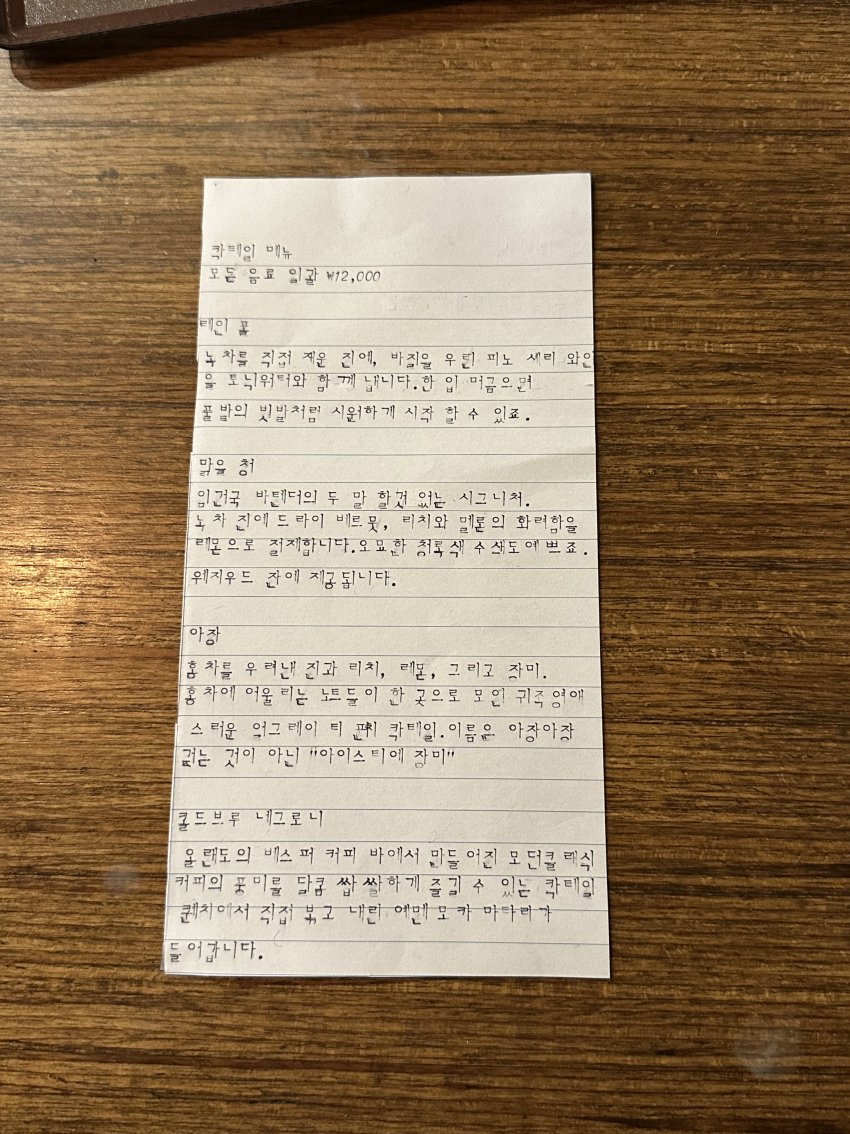 칵테일 메뉴
모든 음료 일괄 ₩12,000
레인 폴
녹차를 직접 재운 진에, 바질을 우린 피노 셰리 와인
을 토닉워터와 함께 냅니다.한 입 머금으면
풀밭의 빗발처럼 시원하게 시작 할 수 있죠.
맑을 청
임건국 바텐더의 두 말 할것 없는 시그니처.
녹차 진에 드라이 베르뭇, 리치와 멜론의 화려함을
레몬으로 절제합니다.오묘한 청록색 수색도 예쁘죠.
웨지우드 잔에 제공됩니다.
아장
홍차를 우려낸 진과 리치, 레몬, 그리고 장미.
홍차에 어울리는 노트들이 한 곳으로 모인 귀족영애
스러운 얼그레이 티 펀치 칵테일.이름은 아장아장
걷는 것이 아닌 "아이스티에 장미"
콜드브루 네그로니
올랜도의 베스퍼 커피 바에서 만들어진 모던클래식
커피의 풍미를 달콤 쌉쌀하게 즐길 수 있는 칵테일
퀜치에서 직접 볶고 내린 예멘 모카 마타리가
들어갑니다.